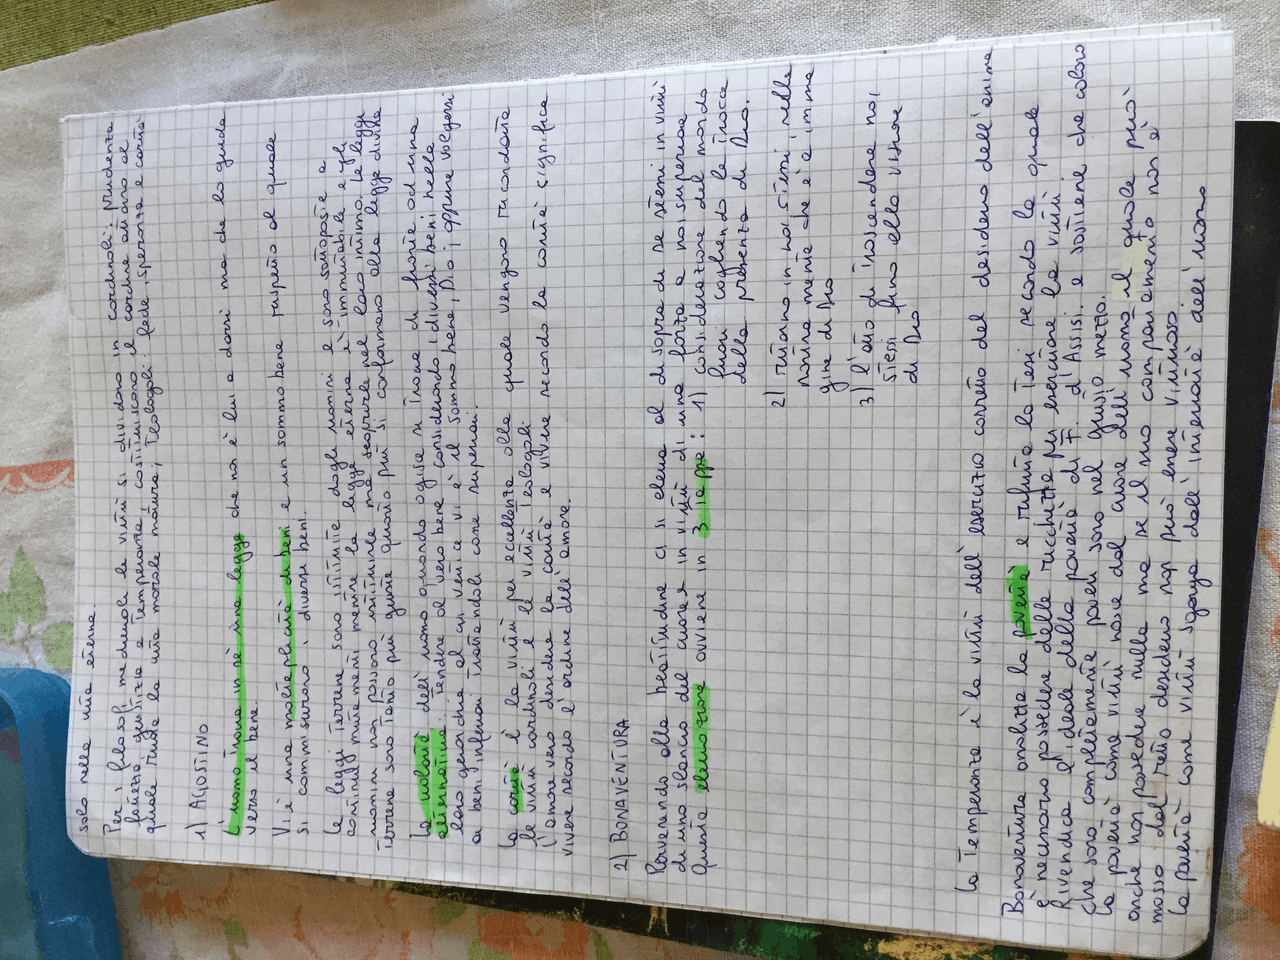 solo nella vita eterna.
Per i filosofi medievali le virtù si dividono in cardinali: prudenza
fortezza, giustizia e temperanza, costituiscono il cardine attorno al
quale ruota la vita morale matura; teologali: fede, speranza e carità
1) AGOSTINO
L'uomo trova in sé una legge che non è lui a darsi ma che lo guida
verso il bene
Vi è una molteplicità di beni e un sommo bene rispetto al quale
si commisurano i diversi beni.
Le leggi terrene sono istituite dagli uomini e sono sottoposte a
continui mutamenti mentre la legge eterna è immutabile e gli
uomini non possono istituirla ma scoprirla nel loro intimo. Le leggi
terrene sono tanto più giuste quanto più si conformano alla legge divina
La volontà dell'uomo quando agisce si trova di fronte ad una
alternativa: tendere al vero bene considerando i diversi beni nella
loro gerarchia al cui vertice vi è il sommo bene, Dio; oppure volgersi
a beni inferiori trattandoli come superiori.
La carità è la virtù per eccellenza alla quale vengono ricondotte
le virtù cardinali e le virtù teologali
L'amore vero desidera la carità e vivere secondo la carità significa
vivere secondo l'ordine dell'amore.
2) BONAVENTURA
Pervenendo alla beatitudine ci si eleva al di sopra di se stessi in virtù
di uno slancio del cuore e in virtù di una forza a noi superiore
Questa elevazione avviene in 3 tappe: 1) considerazione del mondo
fuori cogliendo le tracce
della presenza di Dio.
2) ritorno in noi stessi nella
nostra mente che è imma
gine di Dio
3) l'atto di trascendere noi
stessi fino alla visione
di Dio
La temperanza è la virtù dell'esercizio corretto del desiderio dell'anima
Bonaventura analizza la povertà e rifiuta la tesi secondo la quale
è necessario possedere delle ricchezze per esercitare la virtù
Rivendica l'ideale della povertà di F. d'Assisi. e sostiene che coloro
che sono completamente poveri sono nel giusto mezzo.
La povertà come virtù nasce dal cuore dell'uomo il quale può
anche non possedere nulla ma se il suo comportamento non è
mosso dal retto desiderio non può essere virtuoso
La povertà come virtù sgorga dall'interiorità dell'uomo